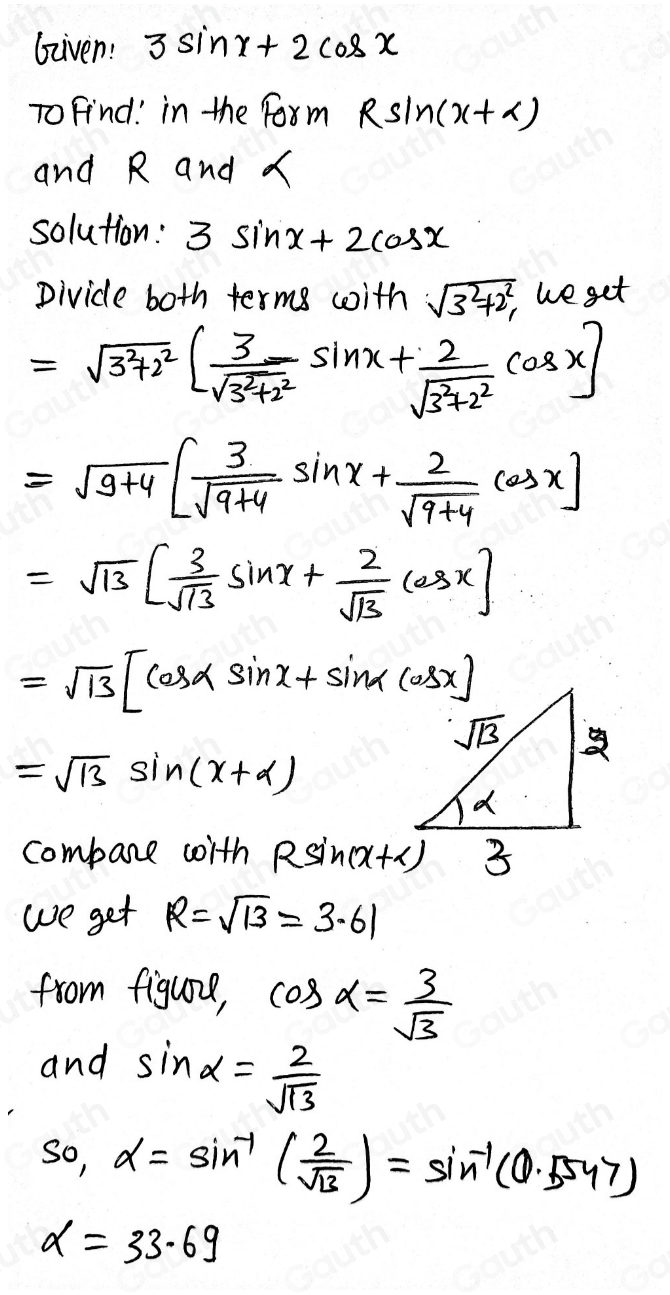 Given: 3 sinx + 2 cos x
To Find: in the form R sin(x+α)
and R and α
Solution: 3 sinx + 2cosx
Divide both terms with √3²+2², we get
= √3²+2² [3/√3²+2² sinx + 2/√3²+2² cos x]
= √9+4 [3/√9+4 sinx + 2/√9+4 cos x]
= √13 [3/√13 sinx + 2/√13 cosx]
= √13 [cosα sinx + sinα cosx]
√13
2
= √13 sin(x+α)
α
Compare with Rsin(x+α)
3
we get R = √13 = 3.61
from figure, cos α = 3/√3
and sinα = 2/√13
so, α = sin⁻¹ (2/√13) = sin⁻¹(0.5547)
α = 33.69
Gauth